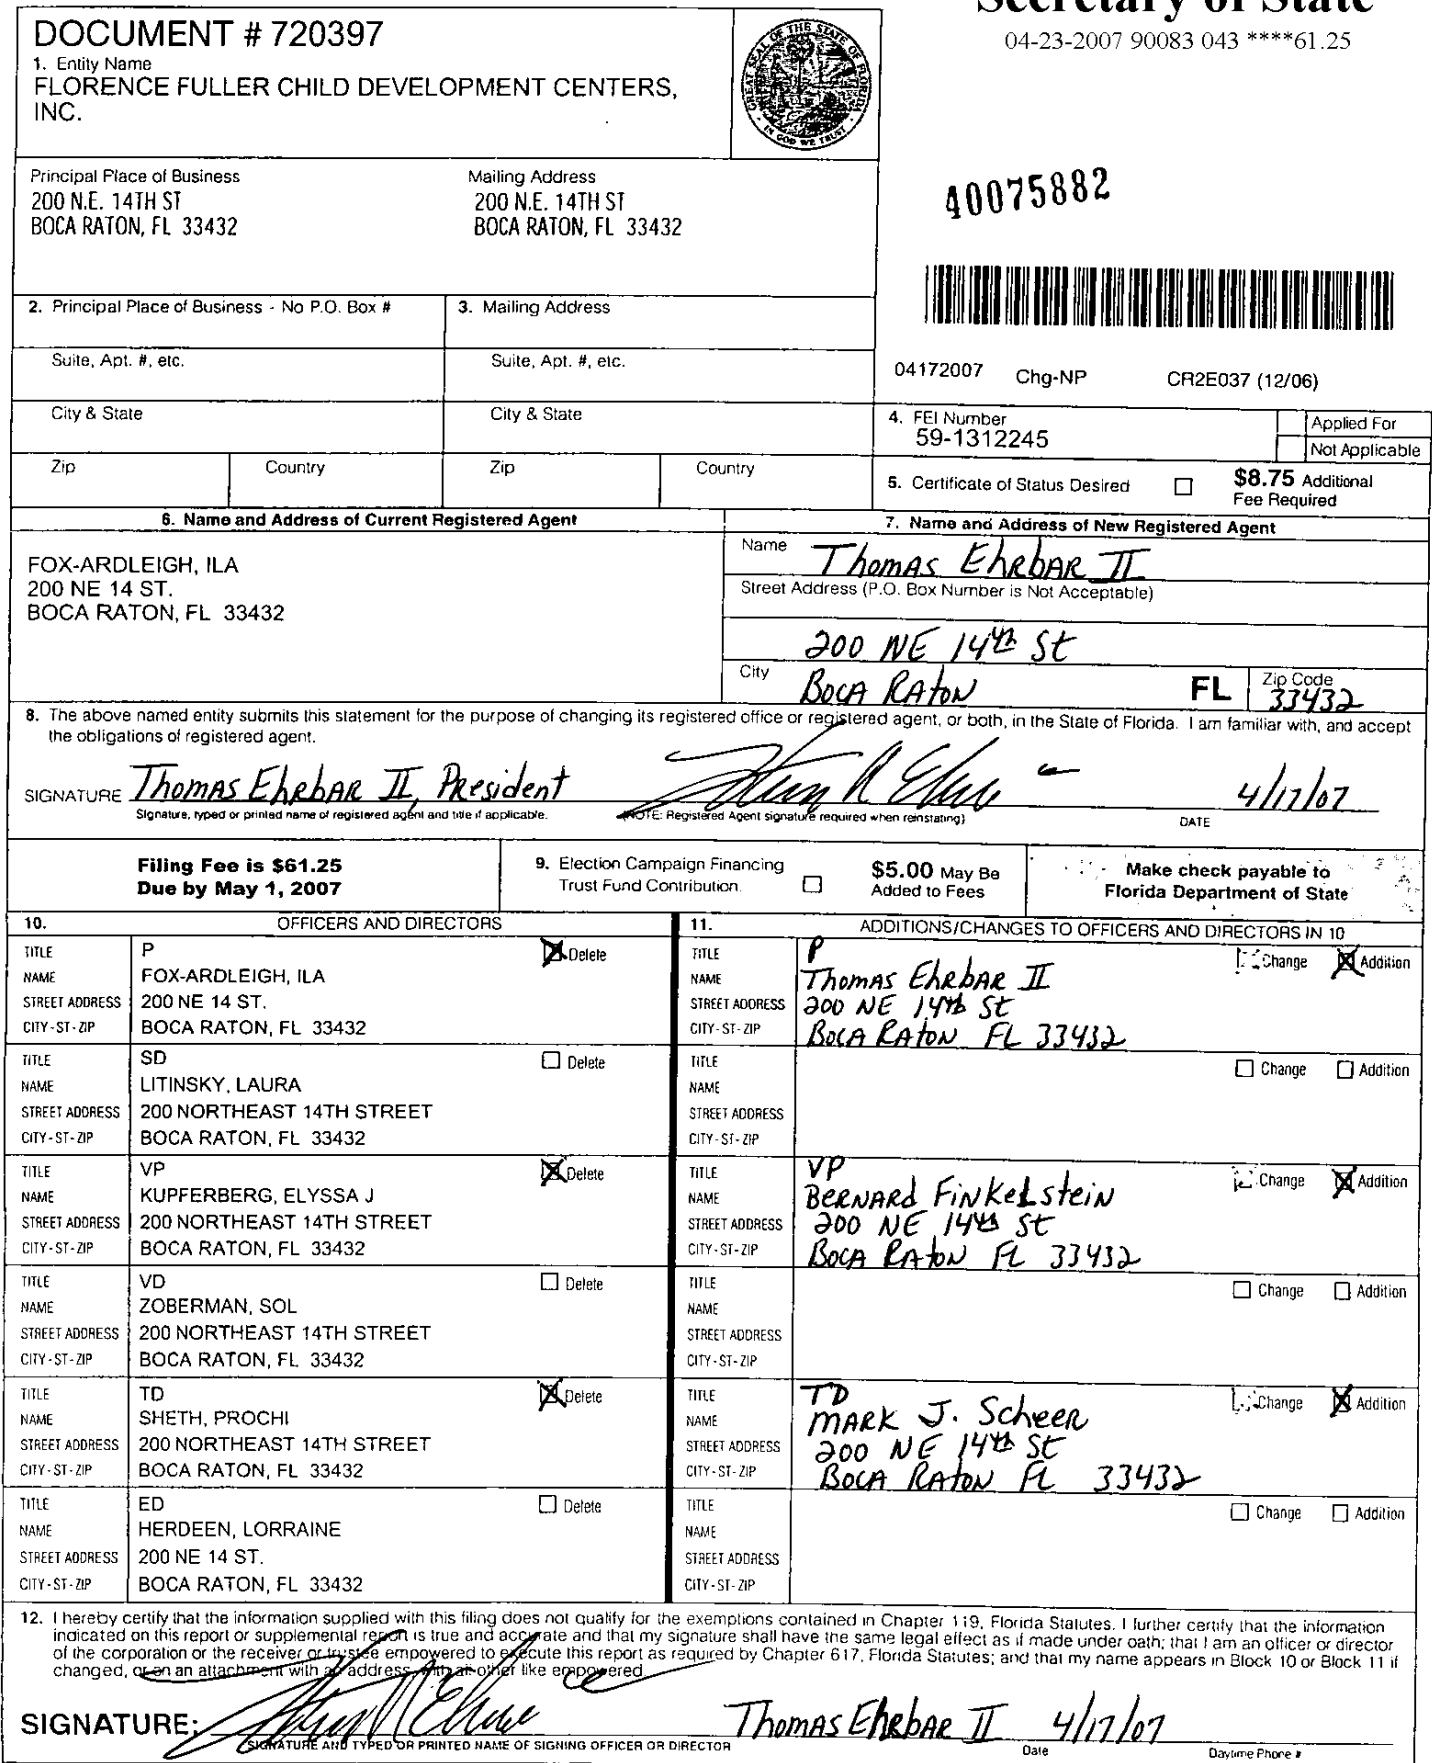 Secretary of State
04-23-2007 90083 043 ****61.25
DOCUMENT # 720397
1. Entity Name
FLORENCE FULLER CHILD DEVELOPMENT CENTERS,
INC.
GREAT SEAL OF THE STATE OF FLORIDA
IN GOD WE TRUST
Principal Place of Business
200 N.E. 14TH ST
BOCA RATON, FL 33432
Mailing Address
200 N.E. 14TH ST
BOCA RATON, FL 33432
40075882
2. Principal Place of Business - No P.O. Box #
3. Mailing Address
Suite, Apt. #, etc.
Suite, Apt. #, etc.
04172007 Chg-NP CR2E037 (12/06)
City & State
City & State
4. FEI Number
59-1312245
Applied For
Not Applicable
Zip
Country
Zip
Country
5. Certificate of Status Desired
$8.75 Additional
Fee Required
6. Name and Address of Current Registered Agent
7. Name and Address of New Registered Agent
FOX-ARDLEIGH, ILA
200 NE 14 ST.
BOCA RATON, FL 33432
Name Thomas Ehrbar II
Street Address (P.O. Box Number is Not Acceptable)
200 NE 14th St
City Boca Raton FL Zip Code 33432
8. The above named entity submits this statement for the purpose of changing its registered office or registered agent, or both, in the State of Florida. I am familiar with, and accept
the obligations of registered agent.
SIGNATURE Thomas Ehrbar II, President 4/17/07
Signature, typed or printed name of registered agent and title if applicable. (NOTE: Registered Agent signature required when reinstating) DATE
Filing Fee is $61.25
Due by May 1, 2007
9. Election Campaign Financing
Trust Fund Contribution.
$5.00 May Be
Added to Fees
Make check payable to
Florida Department of State
10. OFFICERS AND DIRECTORS
11. ADDITIONS/CHANGES TO OFFICERS AND DIRECTORS IN 10
TITLE P Delete
NAME FOX-ARDLEIGH, ILA
STREET ADDRESS 200 NE 14 ST.
CITY-ST-ZIP BOCA RATON, FL 33432
TITLE P Change Addition
NAME Thomas Ehrbar II
STREET ADDRESS 200 NE 14th St
CITY-ST-ZIP Boca Raton FL 33432
TITLE SD Delete
NAME LITINSKY, LAURA
STREET ADDRESS 200 NORTHEAST 14TH STREET
CITY-ST-ZIP BOCA RATON, FL 33432
TITLE Change Addition
NAME
STREET ADDRESS
CITY-ST-ZIP
TITLE VP Delete
NAME KUPFERBERG, ELYSSA J
STREET ADDRESS 200 NORTHEAST 14TH STREET
CITY-ST-ZIP BOCA RATON, FL 33432
TITLE VP Change Addition
NAME Bernard Finkelstein
STREET ADDRESS 200 NE 14th St
CITY-ST-ZIP Boca Raton FL 33432
TITLE VD Delete
NAME ZOBERMAN, SOL
STREET ADDRESS 200 NORTHEAST 14TH STREET
CITY-ST-ZIP BOCA RATON, FL 33432
TITLE Change Addition
NAME
STREET ADDRESS
CITY-ST-ZIP
TITLE TD Delete
NAME SHETH, PROCHI
STREET ADDRESS 200 NORTHEAST 14TH STREET
CITY-ST-ZIP BOCA RATON, FL 33432
TITLE TD Change Addition
NAME Mark J. Scheer
STREET ADDRESS 200 NE 14th St
CITY-ST-ZIP Boca Raton FL 33432
TITLE ED Delete
NAME HERDEEN, LORRAINE
STREET ADDRESS 200 NE 14 ST.
CITY-ST-ZIP BOCA RATON, FL 33432
TITLE Change Addition
NAME
STREET ADDRESS
CITY-ST-ZIP
12. I hereby certify that the information supplied with this filing does not qualify for the exemptions contained in Chapter 119, Florida Statutes. I further certify that the information
indicated on this report or supplemental report is true and accurate and that my signature shall have the same legal effect as if made under oath; that I am an officer or director
of the corporation or the receiver or trustee empowered to execute this report as required by Chapter 617, Florida Statutes; and that my name appears in Block 10 or Block 11 if
changed, or on an attachment with an address, with all other like empowered.
SIGNATURE: Thomas Ehrbar II 4/17/07
SIGNATURE AND TYPED OR PRINTED NAME OF SIGNING OFFICER OR DIRECTOR Date Daytime Phone #